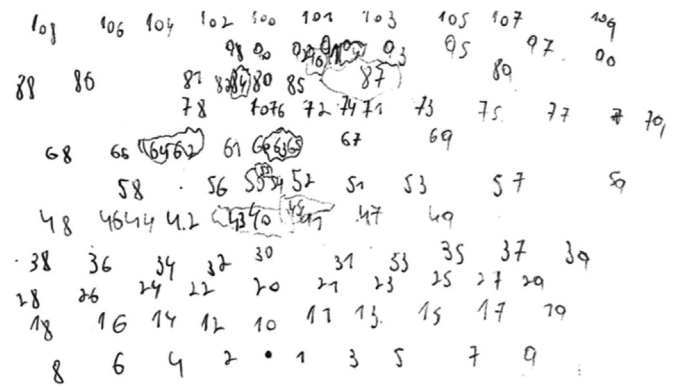 108 106 104 102 100 101 103 105 107 109
98 90 93 95 97 90
88 86 81 82 84 80 85 87 89
78 70 76 72 74 71 73 75 77 7 79
68 66 64 62 61 60 63 65 67 69
58 56 55 53 54 52 51 53 57 59
48 46 44 42 43 40 45 41 47 49
38 36 34 32 30 31 33 35 37 39
28 26 24 22 20 21 23 25 27 29
18 16 14 12 10 11 13 15 17 19
8 6 4 2 • 1 3 5 7 9